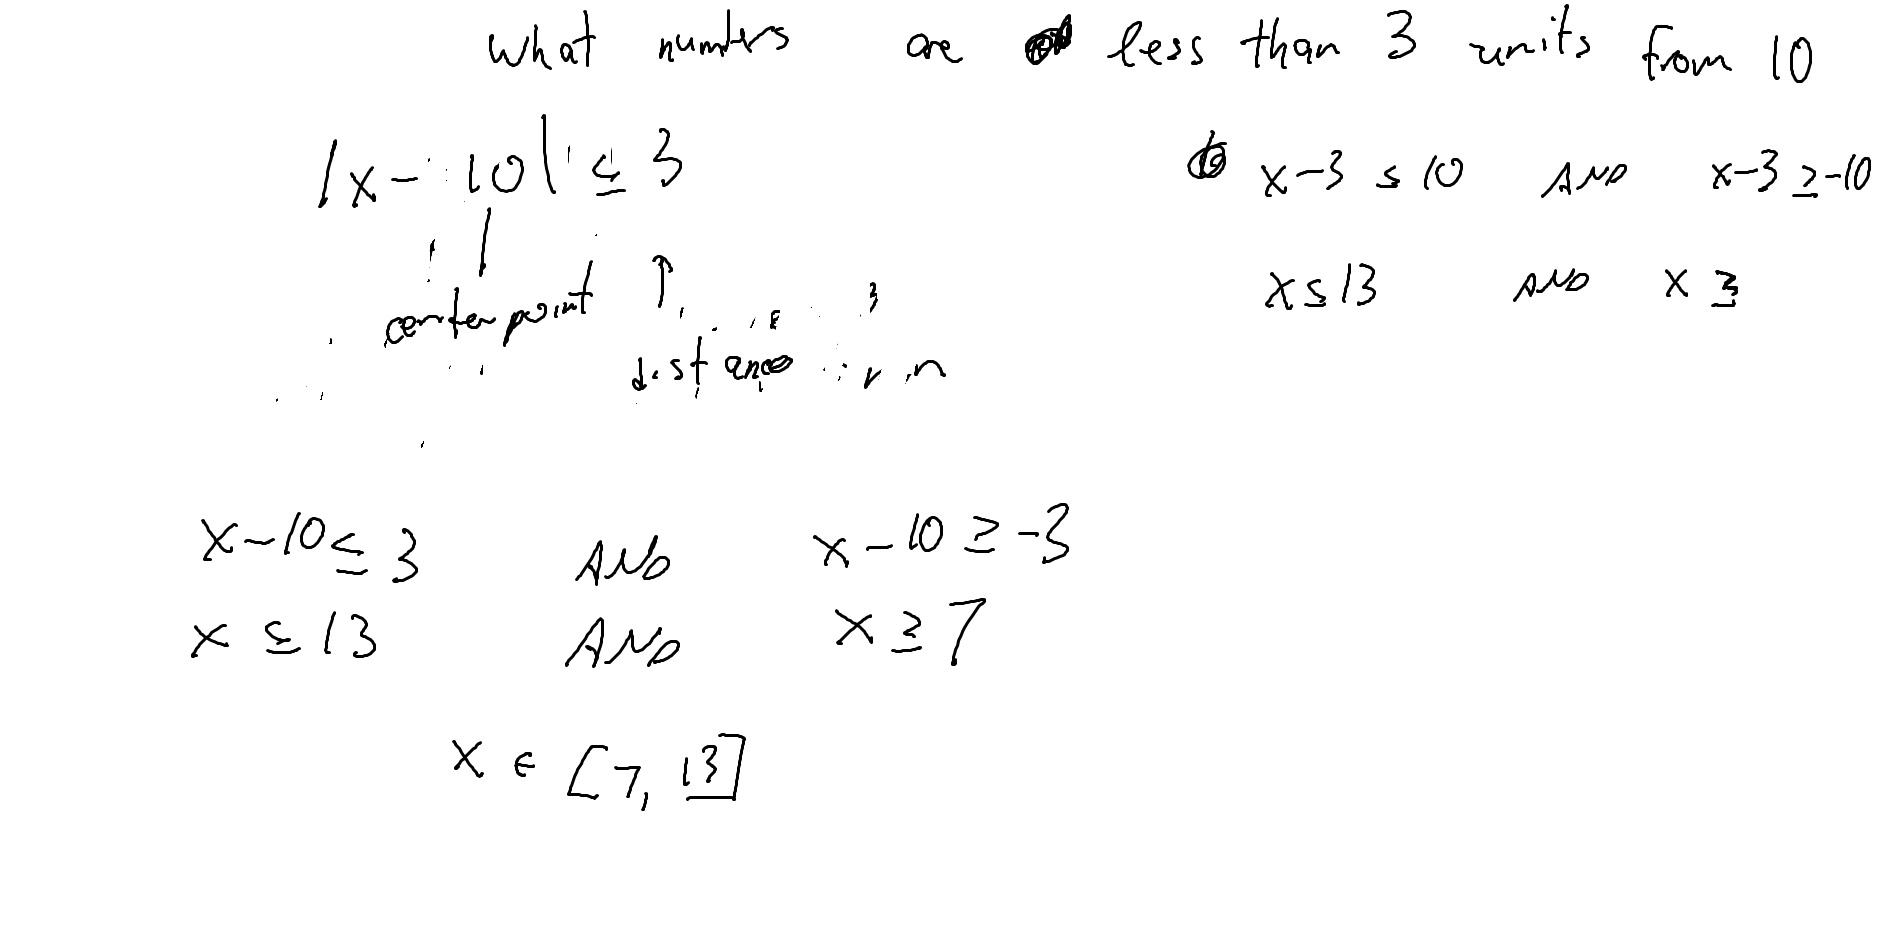 what numbers are less than 3 units from 10
|x - 10| ≤ 3
centerpoint
distance
x - 10 ≤ 3 AND x - 10 ≥ -3
x ≤ 13 AND x ≥ 7
x ∈ [7, 13]
x - 3 ≤ 10 AND x - 3 ≥ -10
x ≤ 13 AND x ≥